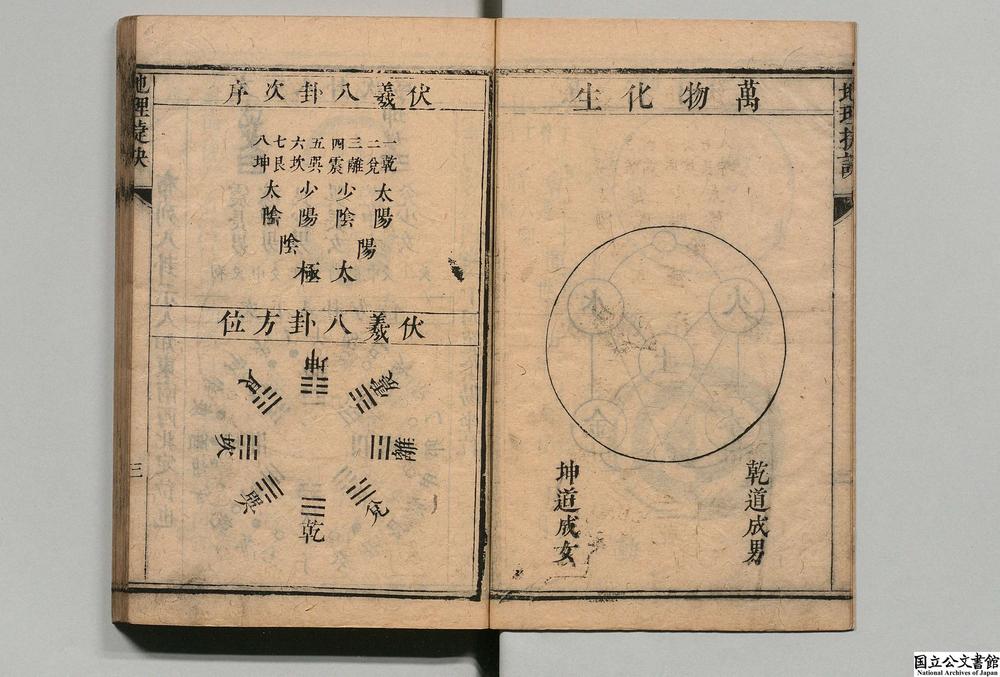 地理捷訣
萬物化生
乾道成男
坤道成女
伏羲八卦次序
一乾
二兌
三離
四震
五巽
六坎
七艮
八坤
太陽
少陰
少陽
太陰
陽
陰
太極
伏羲八卦方位
坤
震
離
兌
乾
巽
坎
艮
地理捷訣
三
国立公文書館
National Archives of Japan